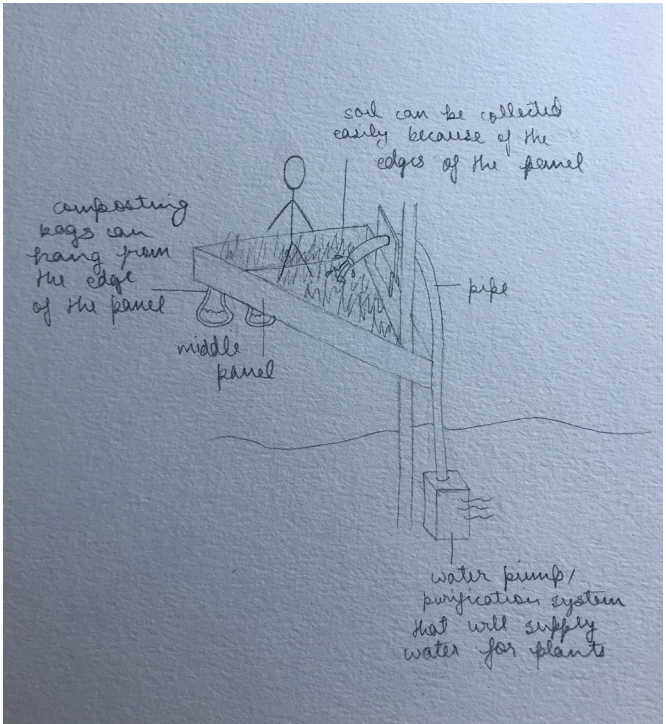 soil can be collected
easily because of the
edges of the panel
composting
bags can
hang from
the edge
of the panel
pipe
middle
panel
water pump/
purification system
that will supply
water for plants